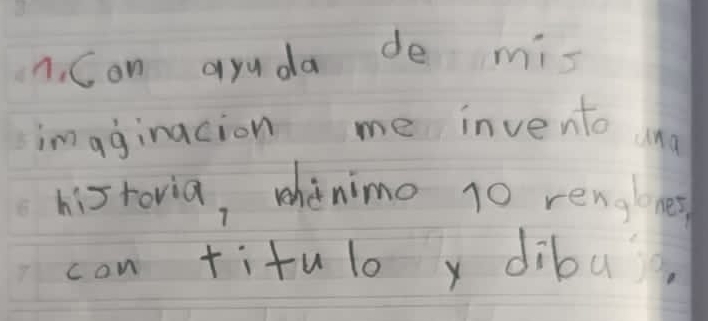 1. Con ayuda de mis
imaginacion me invento una
historia, minimo 10 renglones,
con titulo y dibujo.